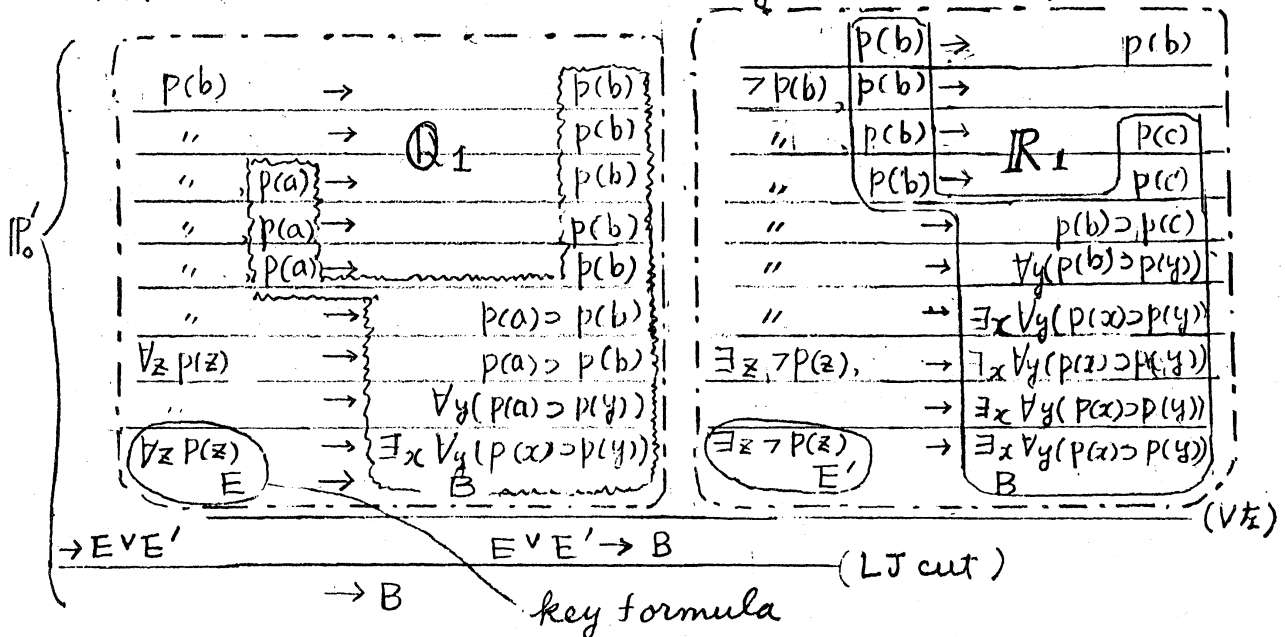 ℙ₀′
p(b) → p(b)
〃 → p(b)
ℚ₁
〃, p(a) → p(b)
〃 p(a) → p(b)
〃 p(a) → p(b)
〃 → p(a)⊃p(b)
∀z p(z) → p(a)⊃p(b)
〃 → ∀y(p(a)⊃p(y))
∀z p(z) → ∃x∀y(p(x)⊃p(y))
E → B
p(b) → p(b)
¬p(b), p(b) →
〃 p(b) → p(c)
ℝ₁
〃 p(b) → p(c)
〃 → p(b)⊃p(c)
〃 → ∀y(p(b)⊃p(y))
〃 → ∃x∀y(p(x)⊃p(y))
∃z¬p(z), → ∃x∀y(p(x)⊃p(y))
→ ∃x∀y(p(x)⊃p(y))
∃z¬p(z) → ∃x∀y(p(x)⊃p(y))
E′ B
(∨左)
→E∨E′ E∨E′→ B
(LJ cut)
→ B
key formula